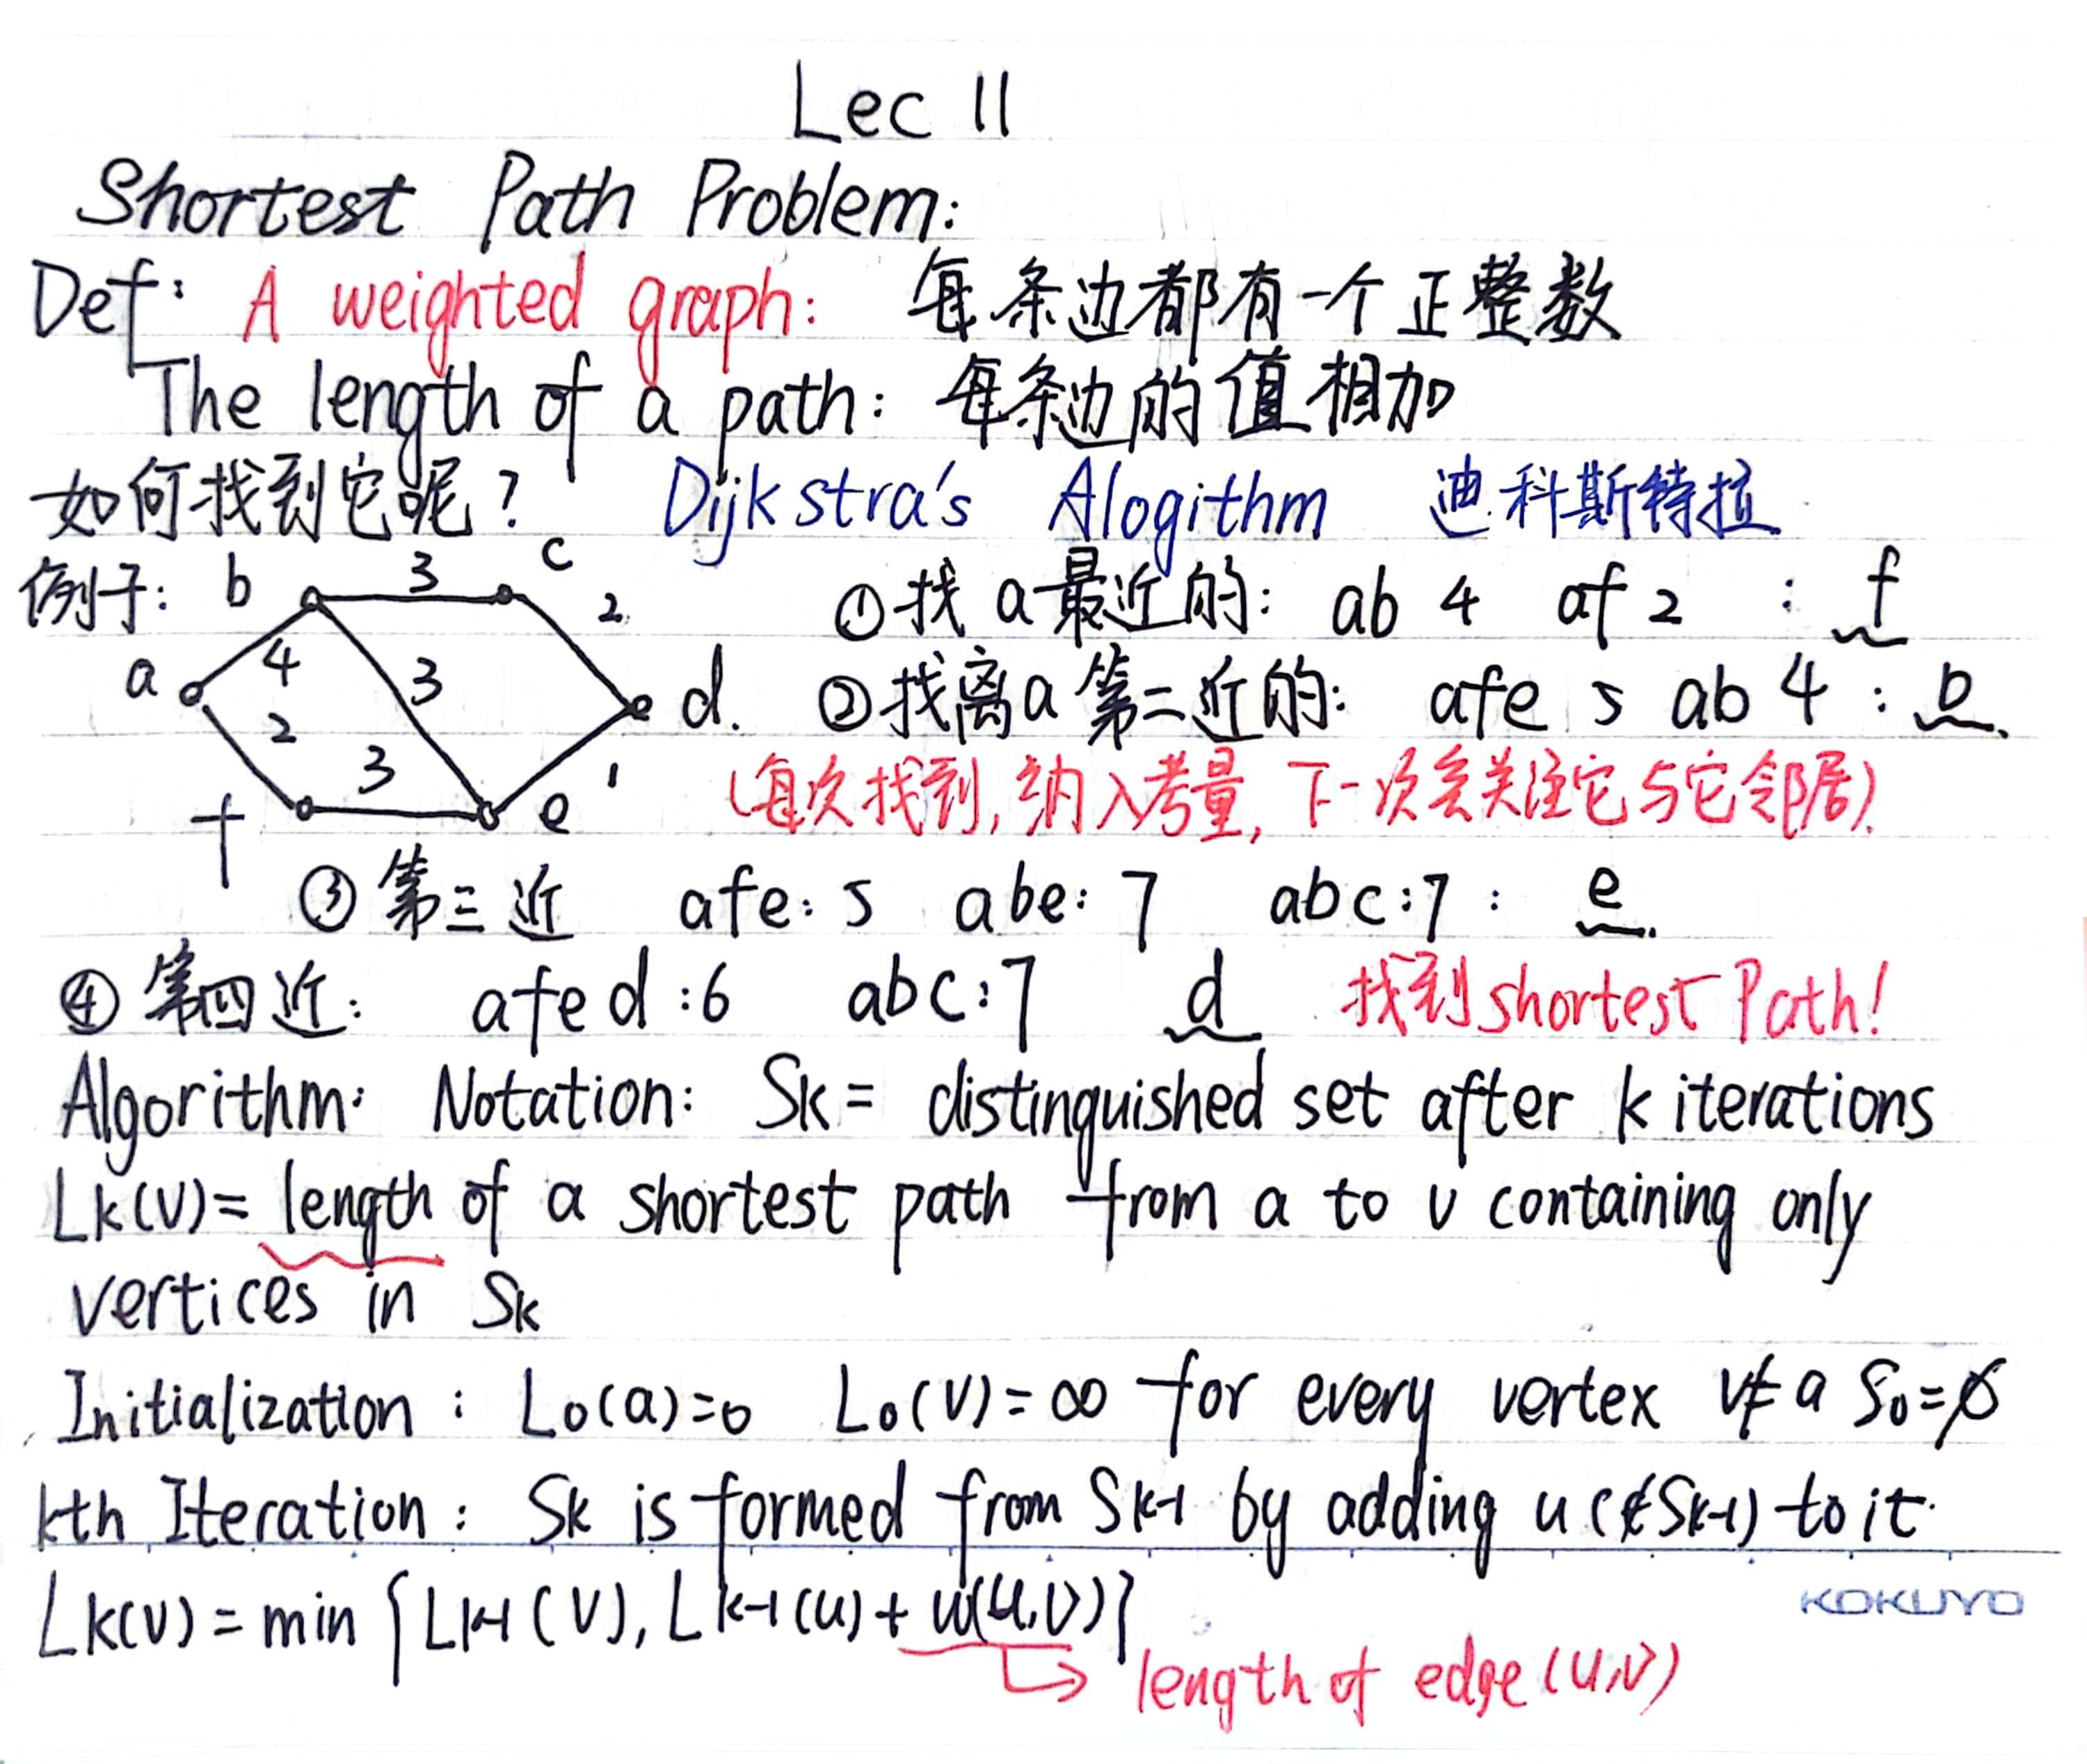 Lec 11
Shortest Path Problem:
Def: A weighted graph: 每条边都有一个正整数
The length of a path: 每条边的值相加
如何找到它呢? Dijkstra's Alogithm 迪科斯特拉
例子: b 3 c 2 ①找a最近的: ab 4 af 2 : f
a 4 3 d. ②找离a第二近的: afe 5 ab 4 : b.
2 3 1 (每次找到,纳入考量,下一次会关注它与它邻居).
f e
③第三近 afe: 5 abe: 7 abc:7 : e.
④第四近: afed:6 abc:7 d 找到shortest Path!
Algorithm: Notation: Sk = distinguished set after k iterations
Lk(v)= length of a shortest path from a to v containing only
vertices in Sk
Initialization: L₀(a)=0 L₀(v)=∞ for every vertex v≠a S₀=∅
kth Iteration: Sk is formed from Sk-1 by adding u(∉Sk-1) to it.
Lk(v) = min {Lk-1(v), Lk-1(u) + w(u,v)}
KOKUYO
length of edge (u,v)